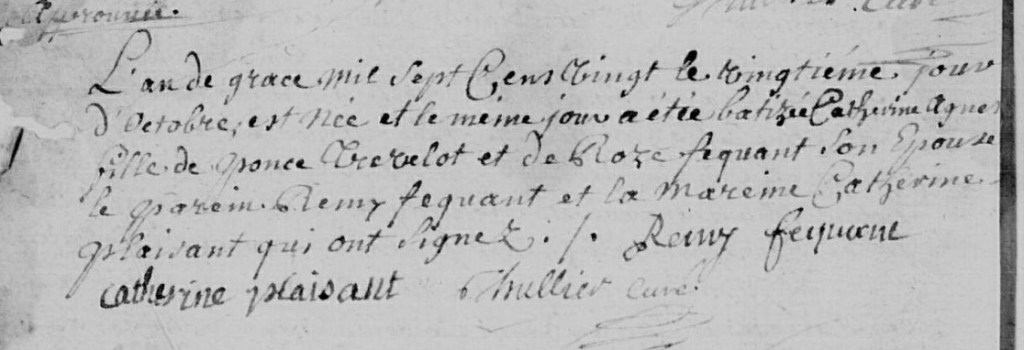 L'an de grace mil Sept Cens Vingt le vingtiéme jour
d'Octobre, est Née et le méme jour a étée batizée Catherine Agnes
fille de Ponce Trevelot et de Roze fequant Son Epouse
le parein Remy fequant et la Mareine Catherine
plaisant qui ont Signez ./. Remy fequant
catherine plaisant Thullier Curé